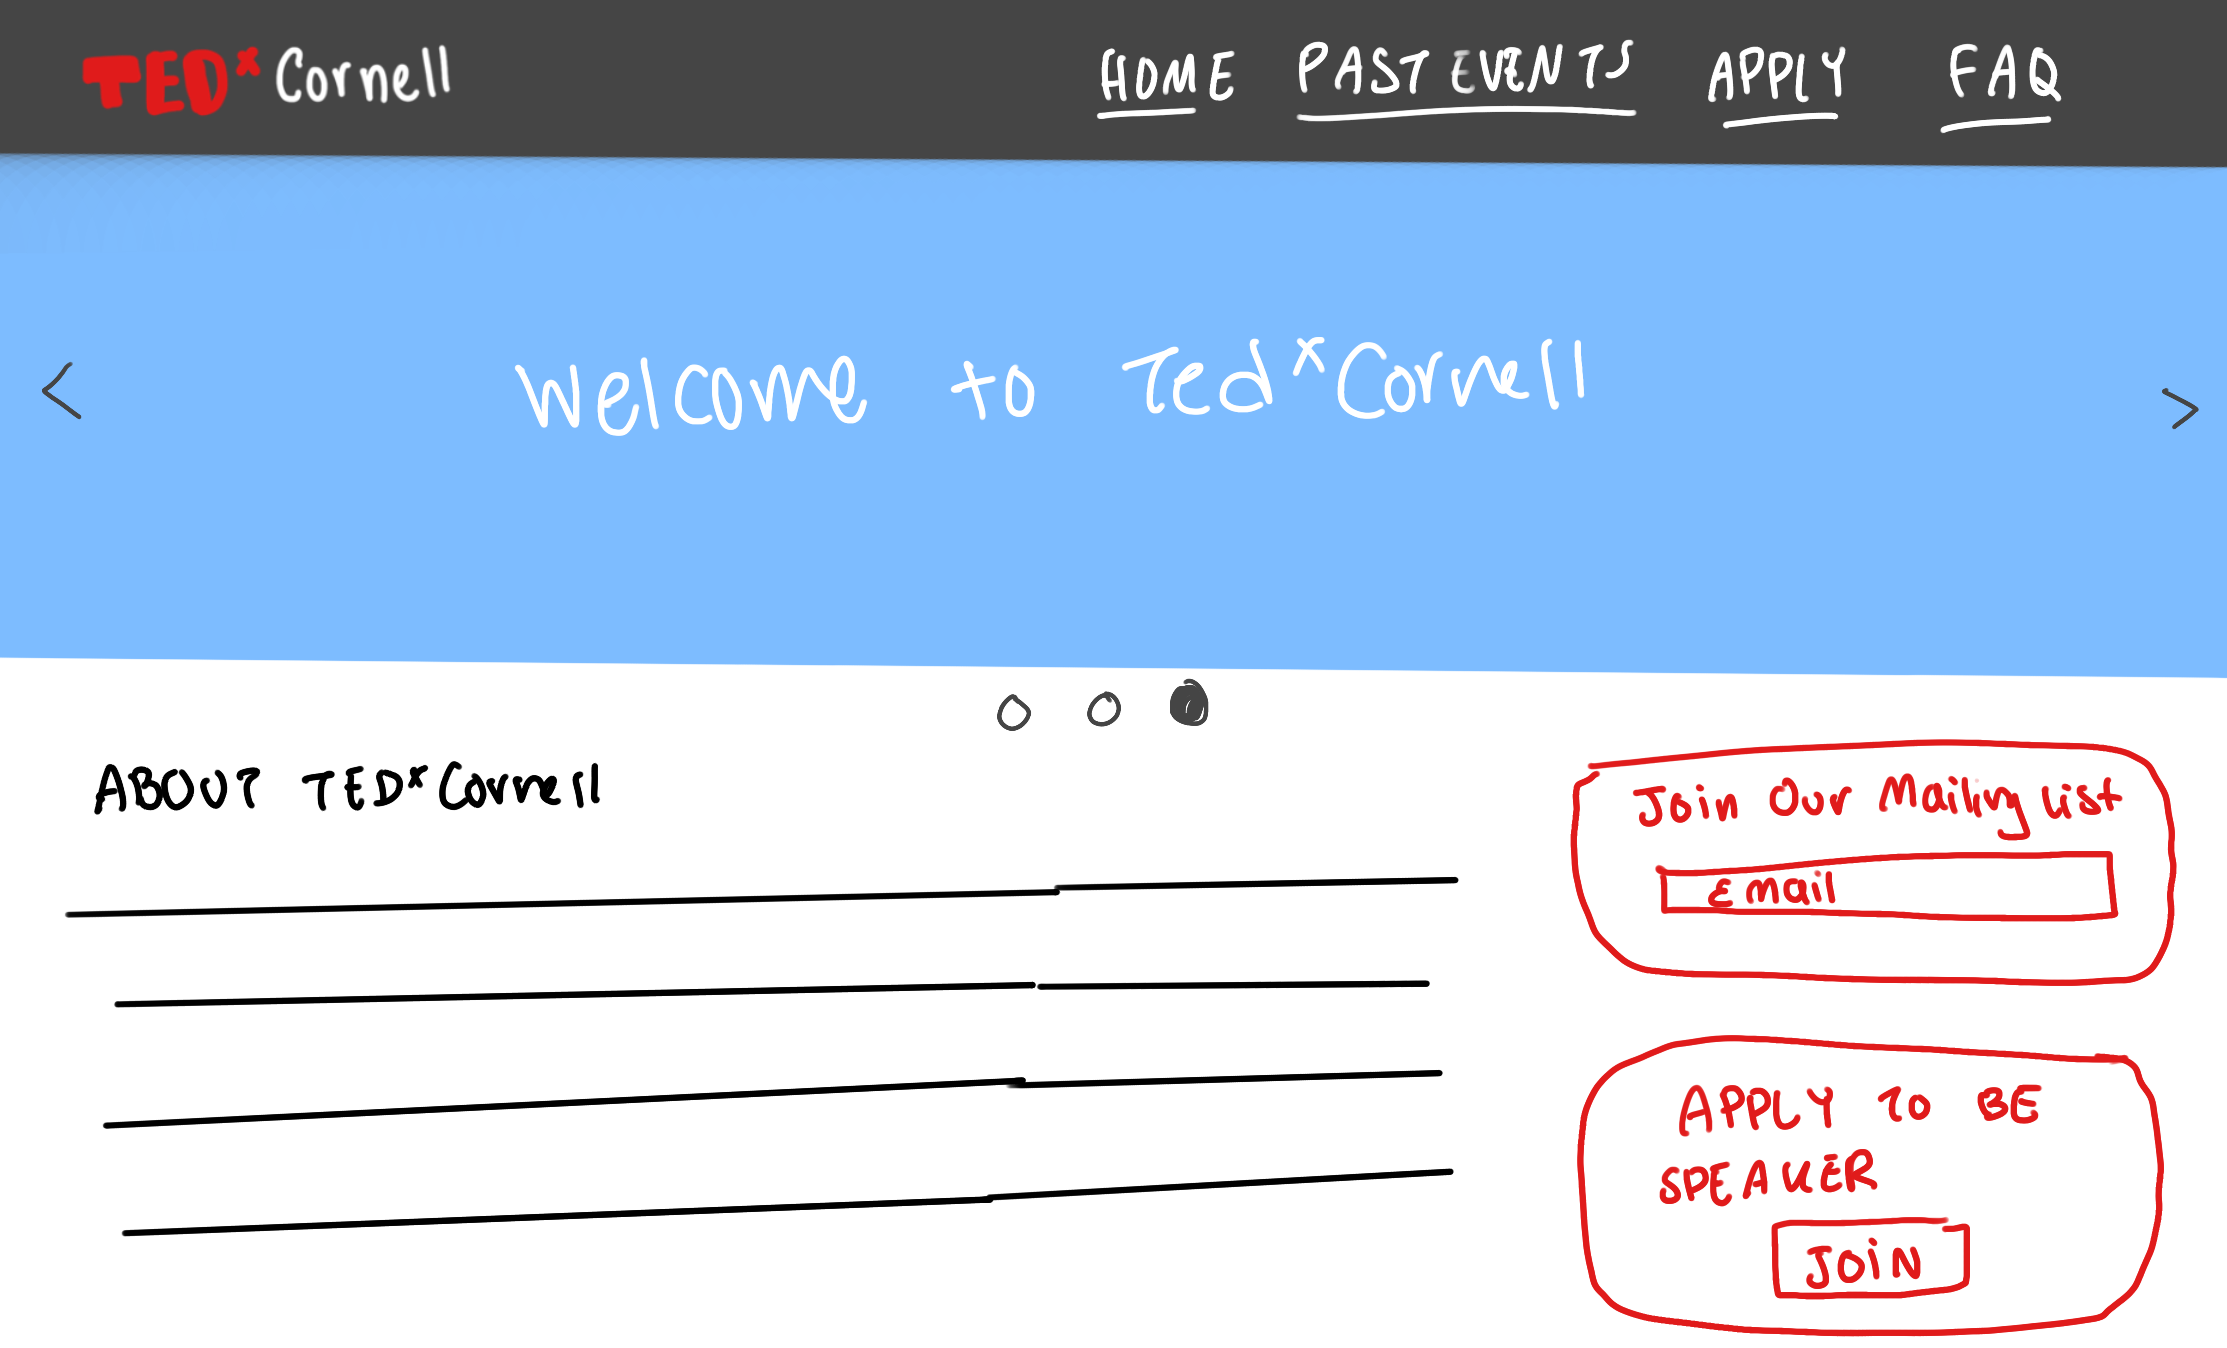 TEDx Cornell
HOME PAST EVENTS APPLY FAQ
< Welcome to TedxCornell >
ABOUT TEDxCornell
Join Our Mailing List
Email
APPLY TO BE
SPEAKER
JOIN